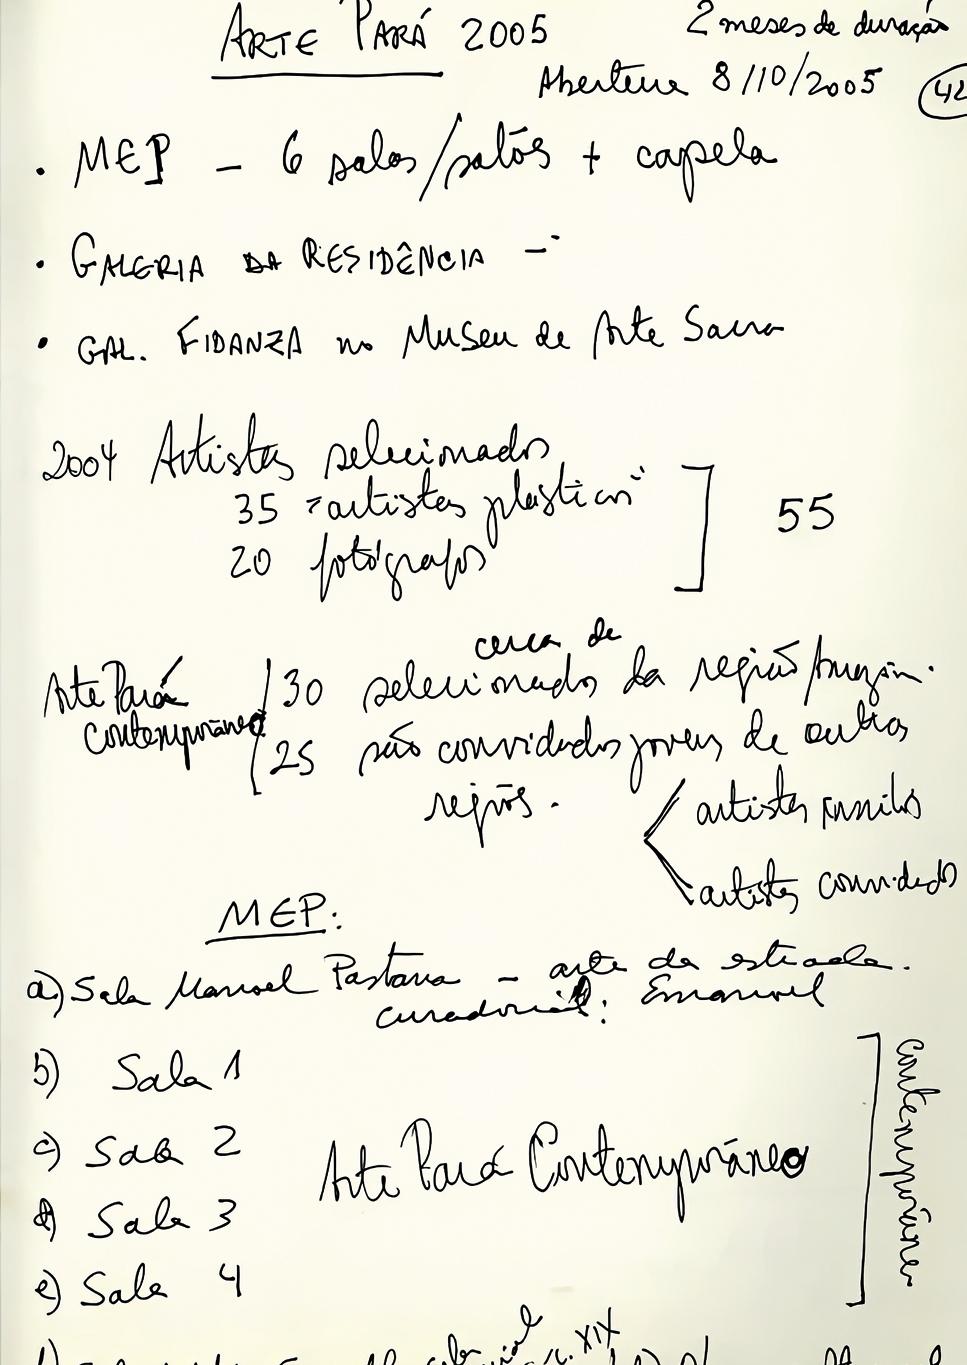 ARTE PARÁ 2005
2 meses de duração
Abertura 8/10/2005
42
• MEP – 6 salas/salões + capela
• GALERIA DA RESIDÊNCIA –
• GAL. FIDANZA no Museu de Arte Sacra
2004 Artistas selecionados
35 "artistas plásticos"
20 fotógrafos
55
cerca de
Arte Pará
contemporâneo
30 selecionados da região Amazôn.
25 são convidados jovens de outras
regiões.
artistas
artistas convidados
MEP:
a) Sala Manoel Pastana – arte da estrada.
curadoria: Emanuel
b) Sala 1
c) Sala 2
d) Sala 3
e) Sala 4
Arte Pará Contemporâneo
Contemporâneo
XIX